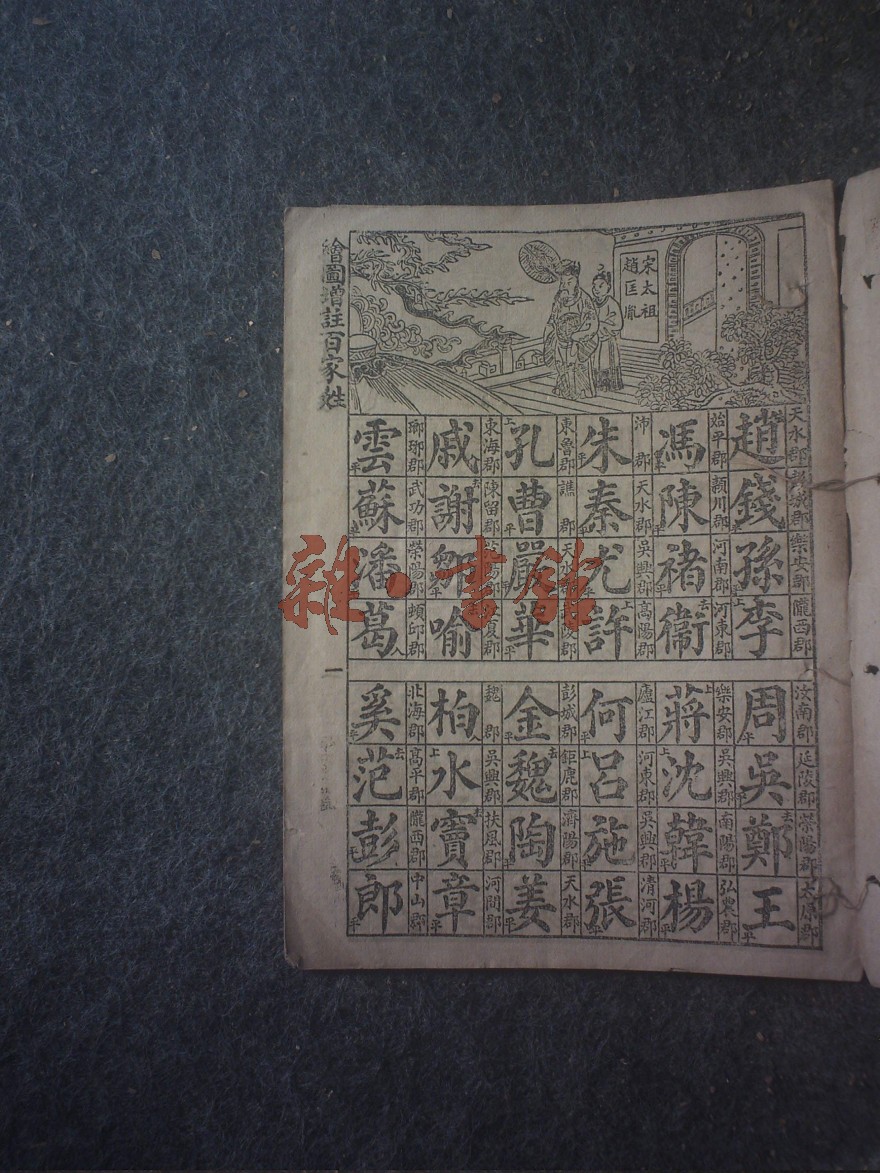 宋太祖
趙匡胤
天水郡 彭城郡 樂安郡 隴西郡
趙錢孫李
始平郡 潁川郡 河南郡 河東郡
馮陳褚衞
沛郡 天水郡 吳興郡 高陽郡
朱秦尤許
東魯郡 譙郡 天水郡 武陵郡
孔曹嚴華
東海郡 陳留郡
戚謝鄒喻
瑯琊郡 武功郡 滎陽郡 頓邱郡
雲蘇潘葛
汝南郡 延陵郡 滎陽郡 太原郡
周吳鄭王
樂安郡 吳興郡 南陽郡 弘農郡
蔣沈韓楊
廬江郡 河東郡 吳興郡 清河郡
何呂施張
彭城郡 鉅鹿郡 濟陽郡 天水郡
金魏陶姜
魏郡 吳興郡 扶風郡 河間郡
柏水竇章
北海郡 高平郡 隴西郡 中山郡
奚范彭郎
繪圖增註百家姓
一
雜·書館